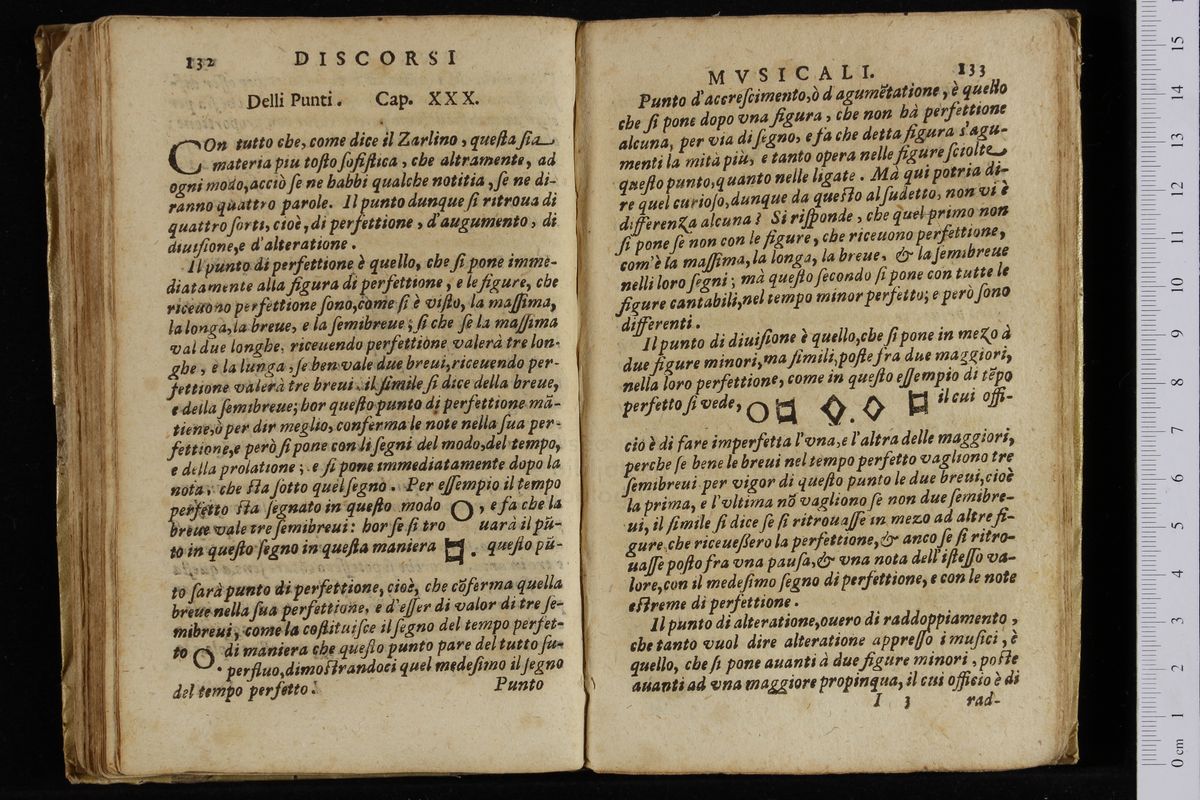 132 DISCORSI
Delli Punti. Cap. XXX.
COn tutto che, come dice il Zarlino, questa sia
materia piu tosto sofistica, che altramente, ad
ogni modo, acciò se ne habbi qualche notitia, se ne di-
ranno quattro parole. Il punto dunque si ritroua di
quattro sorti, cioè, di perfettione, d'augumento, di
diuisione, e d'alteratione.
Il punto di perfettione è quello, che si pone imme-
diatamente alla figura di perfettione, e le figure, che
riceuono perfettione sono, come si è visto, la massima,
la longa, la breue, e la semibreue; si che se la massima
val due longhe, riceuendo perfettione valerà tre lon-
ghe, e la lunga, se ben vale due breui, riceuendo per-
fettione valerà tre breui. il simile si dice della breue,
e della semibreue; hor questo punto di perfettione mã-
tiene, ò per dir meglio, conferma le note nella sua per-
fettione, e però si pone con li segni del modo, del tempo,
e della prolatione; e si pone immediatamente dopo la
nota, che sta sotto quel segno. Per essempio il tempo
perfetto sta segnato in questo modo O, e fa che la
breue vale tre semibreui: hor se si tro uarà il pũ-
to in questo segno in questa maniera . questo pũ-
to sarà punto di perfettione, cioè, che cõferma quella
breue nella sua perfettione, e d'esser di valor di tre se-
mibreui, come la costituisce il segno del tempo perfet-
to O. di maniera che questo punto pare del tutto su-
perfluo, dimostrandoci quel medesimo il segno
del tempo perfetto.
Punto
MVSICALI. 133
Punto d'accrescimento, ò d agumẽtatione, è quello
che si pone dopo vna figura, che non hà perfettione
alcuna, per via di segno, e fa che detta figura s'agu-
menti la mità più, e tanto opera nelle figure sciolte
questo punto, quanto nelle ligate. Mà qui potria di-
re quel curioso, dunque da questo al sudetto, non vi è
differenza alcuna? Si risponde, che quel primo non
si pone se non con le figure, che riceuono perfettione,
com'è la massima, la longa, la breue, & la semibreue
nelli loro segni; mà questo secondo si pone con tutte le
figure cantabili, nel tempo minor perfetto; e però sono
differenti.
Il punto di diuisione è quello, che si pone in mezo à
due figure minori, ma simili, poste fra due maggiori,
nella loro perfettione, come in questo essempio di tẽpo
perfetto si vede, il cui offi-
cio è di fare imperfetta l'vna, e l'altra delle maggiori,
perche se bene le breui nel tempo perfetto vagliono tre
semibreui per vigor di questo punto le due breui, cioè
la prima, e l'vltima nõ vagliono se non due semibre-
ui, il simile si dice se si ritrouasse in mezo ad altre fi-
gure che riceueßero la perfettione, & anco se si ritro-
uasse posto fra vna pausa, & vna nota dell'istesso va-
lore, con il medesimo segno di perfettione, e con le note
estreme di perfettione.
Il punto di alteratione, ouero di raddoppiamento,
che tanto vuol dire alteratione appresso i musici, è
quello, che si pone auanti à due figure minori, poste
auanti ad vna maggiore propinqua, il cui officio è di
I 3 rad-
0 cm 1 2 3 4 5 6 7 8 9 10 11 12 13 14 15